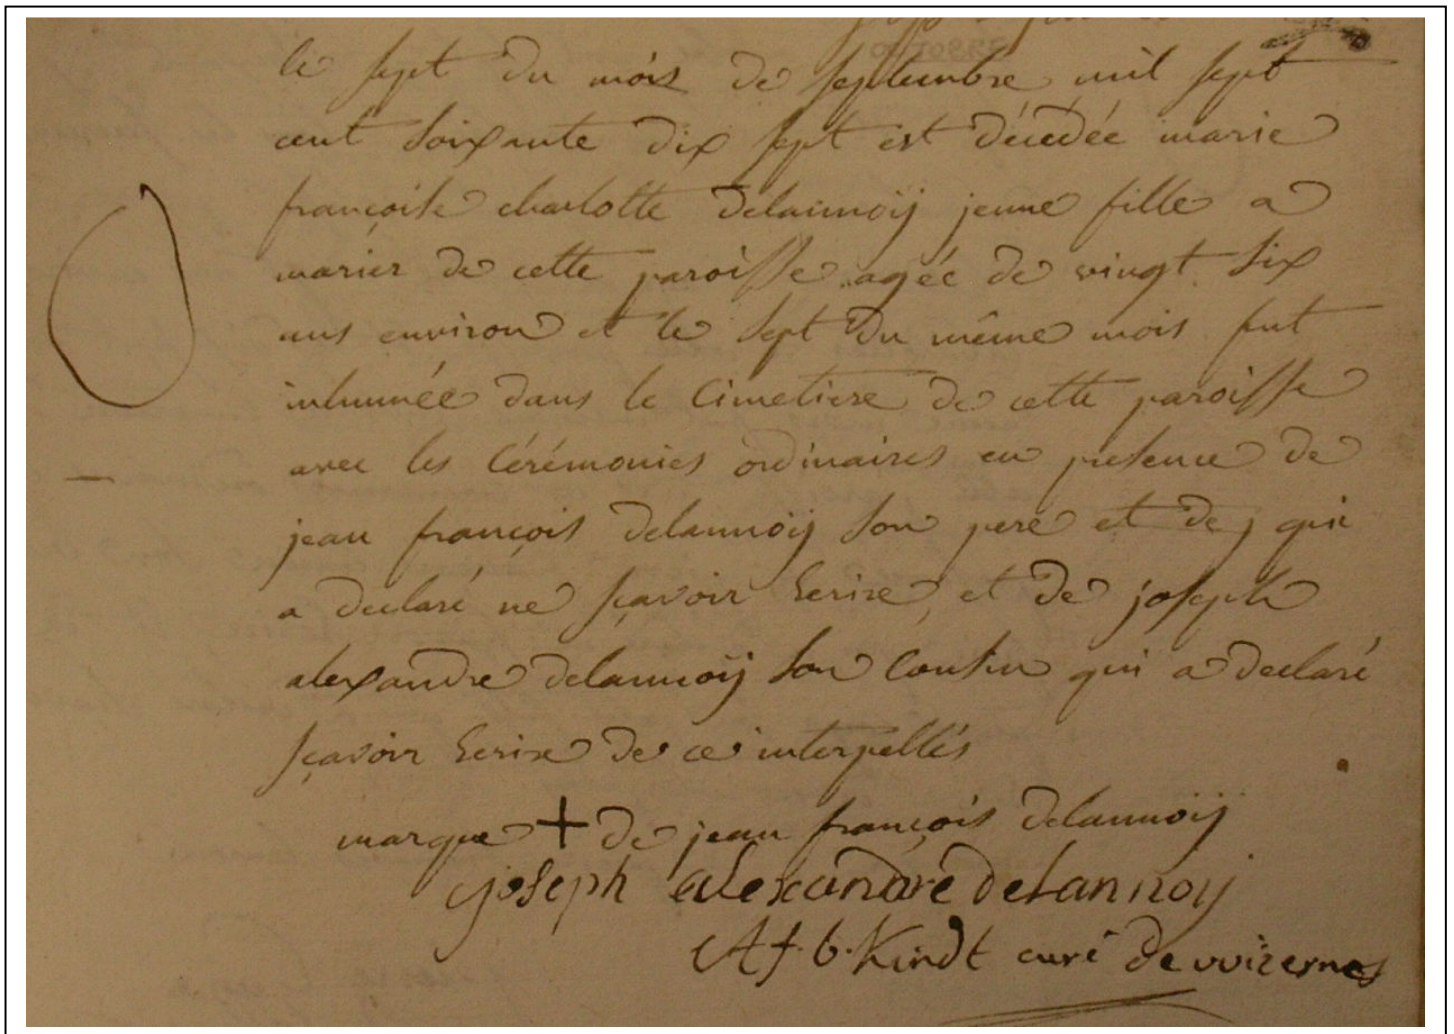 le sept du mois de septembre mil sept
cent soixante dix sept est décedée marie
françoise charlotte delannoÿ jeune fille a
marier de cette paroisse agée de vingt six
ans environ et le sept du même mois fut
inhumée dans le Cimetiere de cette paroisse
avec les Cérémonies ordinaires en presence de
jean françois delannoÿ son pere et de j qui
a declaré ne sçavoir Ecrire, et de joseph
alexandre delannoÿ son Cousin qui a declaré
sçavoir Ecrire de ce interpellés
marque + de jean françois delannoÿ
joseph alexandre delannoij
A f. b. Kindt curé de wizernes